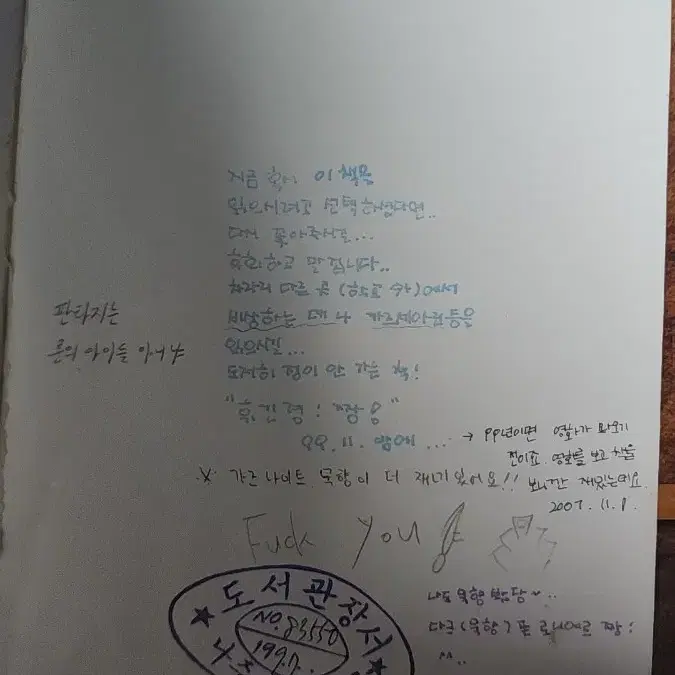 지금 혹시 이 책을
읽으시려고 선택하셨다면..
다시 꽂아주시죠...
후회하고 말 겁니다..
차라리 다른 곳 (학교 外)에서
비상하는 매 나 카르세아린 등을
읽으시길...
도저히 정이 안 가는 책!
"짱!"
99. 11. 밤에 ....
→ 99년이면 영화가 나오기
전이죠. 영화를 보고 책을
보니깐 재밌는데요.
2007. 11. 8.
판타지는
룬의 아이들 아니냐
※ 가즈나이트 묵향이 더 재미있어요!!
Fuck You
나도 묵향 한당~..
다크(묵향)편 로니에르 짱!
^^..
도서관장서
NO. 83550
1997.